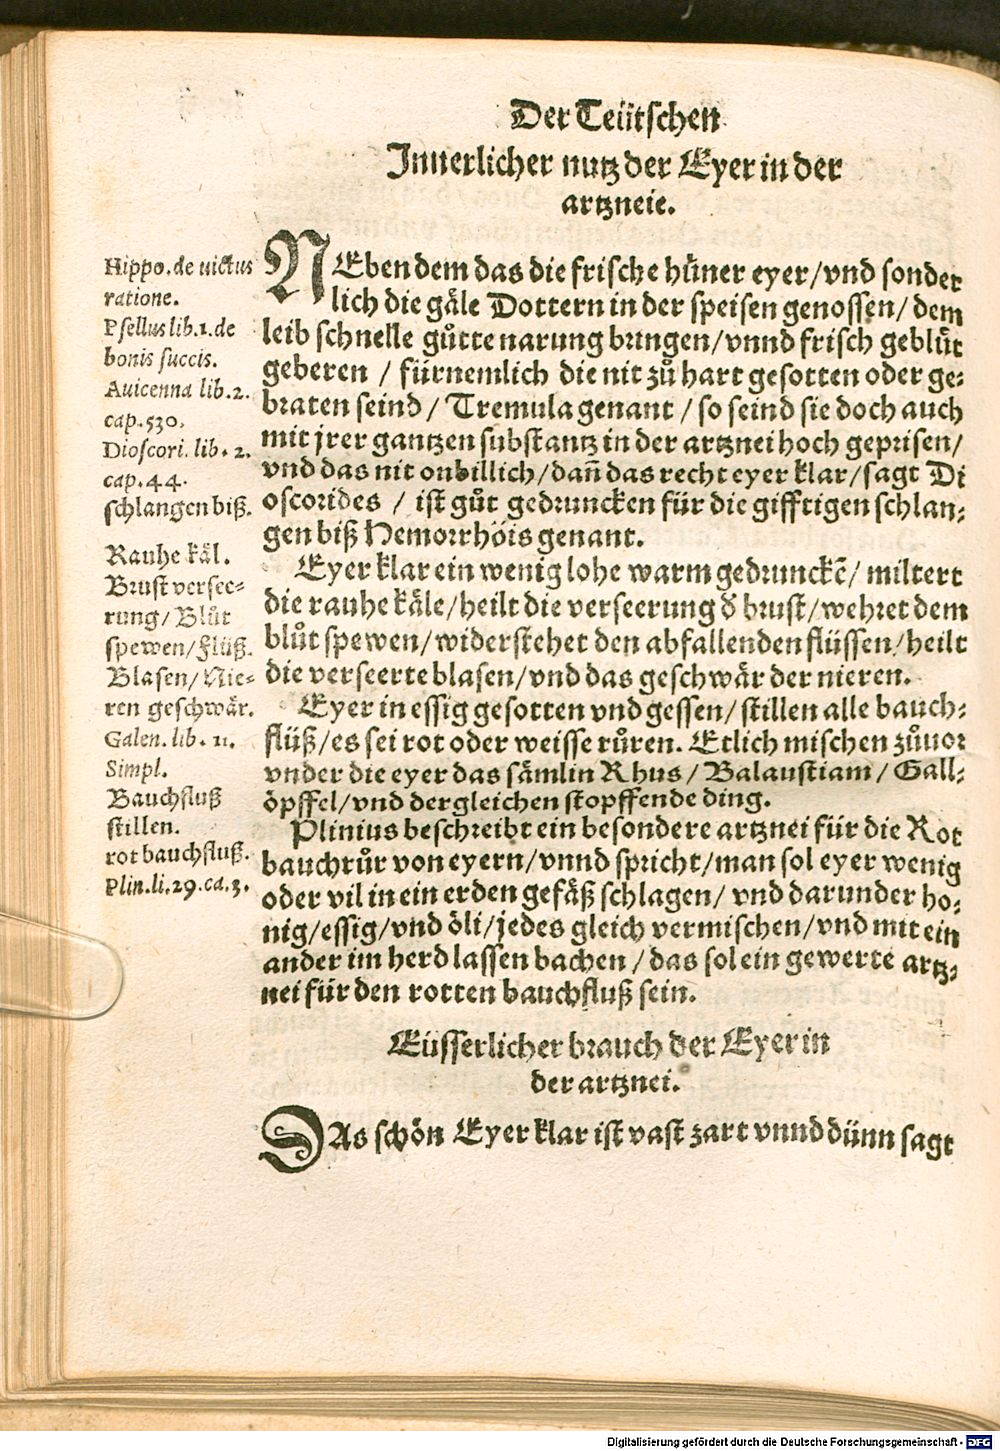 Der Teütschen
Innerlicher nutz der Eyer in der
artzneie.
Hippo. de uictus
ratione.
Psellus lib. 1. de
bonis succis.
Auicenna lib. 2.
cap. 530.
Dioscori. lib. 2.
cap. 44.
schlangen biß.
Rauhe käl.
Brust versee-
rung/ Blůt
spewen/ Flüß.
Blasen/ Nie-
ren geschwär.
Galen. lib. 11.
Simpl.
Bauchfluß
stillen.
rot bauchfluß.
Plin. li. 29. ca. 3.
NEben dem das die frische hüner eyer/ vnd sonder
lich die gäle Dottern in der speisen genossen/ dem
leib schnelle gůtte narung bringen/ vnnd frisch geblůt
geberen / fürnemlich die nit zů hart gesotten oder ge-
braten seind / Tremula genant / so seind sie doch auch
mit jrer gantzen substantz in der artznei hoch geprisen/
vnd das nit onbillich/ dañ das recht eyer klar/ sagt Di
oscorides / ist gůt gedruncken für die gifftigen schlan-
gen biß Hemorrhöis genant.
Eyer klar ein wenig lohe warm gedrunckẽ/ miltert
die rauhe käle/ heilt die verseerung ď brust/ wehret dem
blůt spewen/ widerstehet den abfallenden flüssen/ heilt
die verseerte blasen/ vnd das geschwär der nieren.
Eyer in essig gesotten vnd gessen/ stillen alle bauch-
flüß/ es sei rot oder weisse růren. Etlich mischen zůuor
vnder die eyer das sämlin Rhus / Balaustiam / Gall-
öpffel/ vnd dergleichen stopffende ding.
Plinius beschreibt ein besondere artznei für die Rot
bauchrůr von eyern/ vnnd spricht/ man sol eyer wenig
oder vil in ein erden gefäß schlagen/ vnd darunder ho-
nig/ essig/ vnd öli/ jedes gleich vermischen/ vnd mit ein
ander im herd lassen bachen / das sol ein gewerte artz-
nei für den rotten bauchfluß sein.
Eüsserlicher brauch der Eyer in
der artznei.
DAs schön Eyer klar ist vast zart vnnd dünn sagt
Digitalisierung gefördert durch die Deutsche Forschungsgemeinschaft - DFG